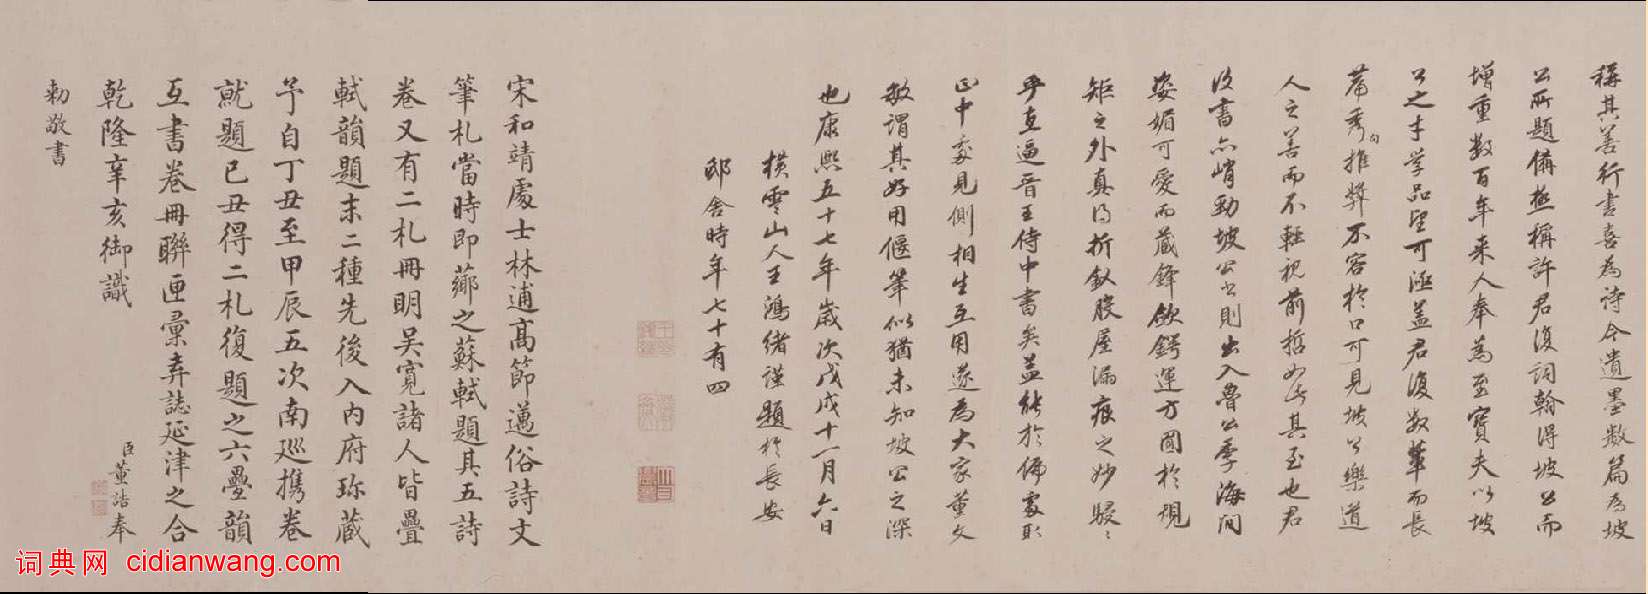 稱其善行書喜為詩今遺墨數篇為坡
公所題備極稱許君復詞翰得坡公而
增重數百年来人奉為至寶夫以坡
公之才學品望可涵盖君復數輩而長
篇秀句推獎不容於口可見坡公樂道
人之善而不輕視前哲如此其至也君
復書亦峭勁坡公書則出入魯公季海間
姿媚可愛而藏鋒歛鍔運方圓於規
矩之外真得折釵股屋漏痕之妙駸〻
乎直逼晋王侍中書矣盖能於偏處取
正中處見側相生互用遂為大家董文
敏謂其好用偃筆似猶未知坡公之深
也康熙五十七年歲次戊戌十一月六日
橫雲山人王鴻緒謹題於長安
邸舍時年七十有四
宋和靖處士林逋高節邁俗詩文
筆札當時即薌之蘇軾題其五詩
卷又有二札冊明吳寬諸人皆疊
軾韻題末二種先後入內府珎藏
予自丁丑至甲辰五次南巡携卷
就題已丑得二札復題之六疊韻
互書卷冊聯匣彙弆誌延津之合
乾隆辛亥御識
臣董誥奉
勅敬書
词典网 cidianwang.com